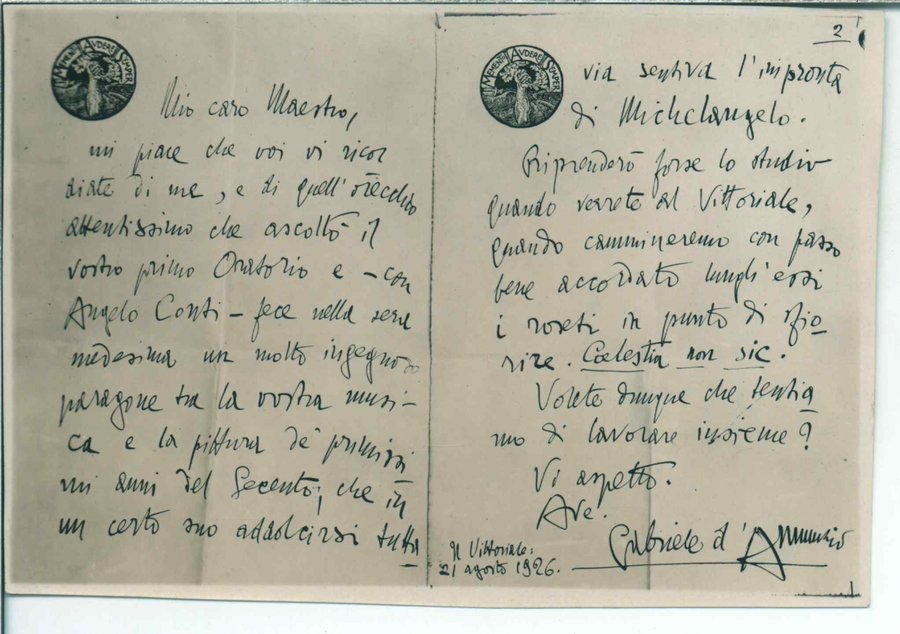 MEMENTO AUDERE SEMPER
Mio caro Maestro,
mi piace che voi vi ricor
diate di me, e di quell'orecchio
attentissimo che ascoltò il
vostro primo Oratorio e – con
Angelo Conti – fece nella sera
medesima un molto ingegnoso
paragone tra la vostra musi-
ca e la pittura de' primissi
mi anni del Secento, che in
un certo suo addolcirsi tutta
2
MEMENTO AUDERE SEMPER
via sentiva l'impronta
di Michelangelo.
Riprenderò forse lo studio
quando verrete al Vittoriale,
quando cammineremo con passo
bene accordato lungh'essi
i roseti in punto di sfio-
rire. Cœlestia non sic.
Volete dunque che tentia
mo di lavorare insieme?
Vi aspetto.
Ave.
Gabriele d'Annunzio
Il Vittoriale:
21 agosto 1926.